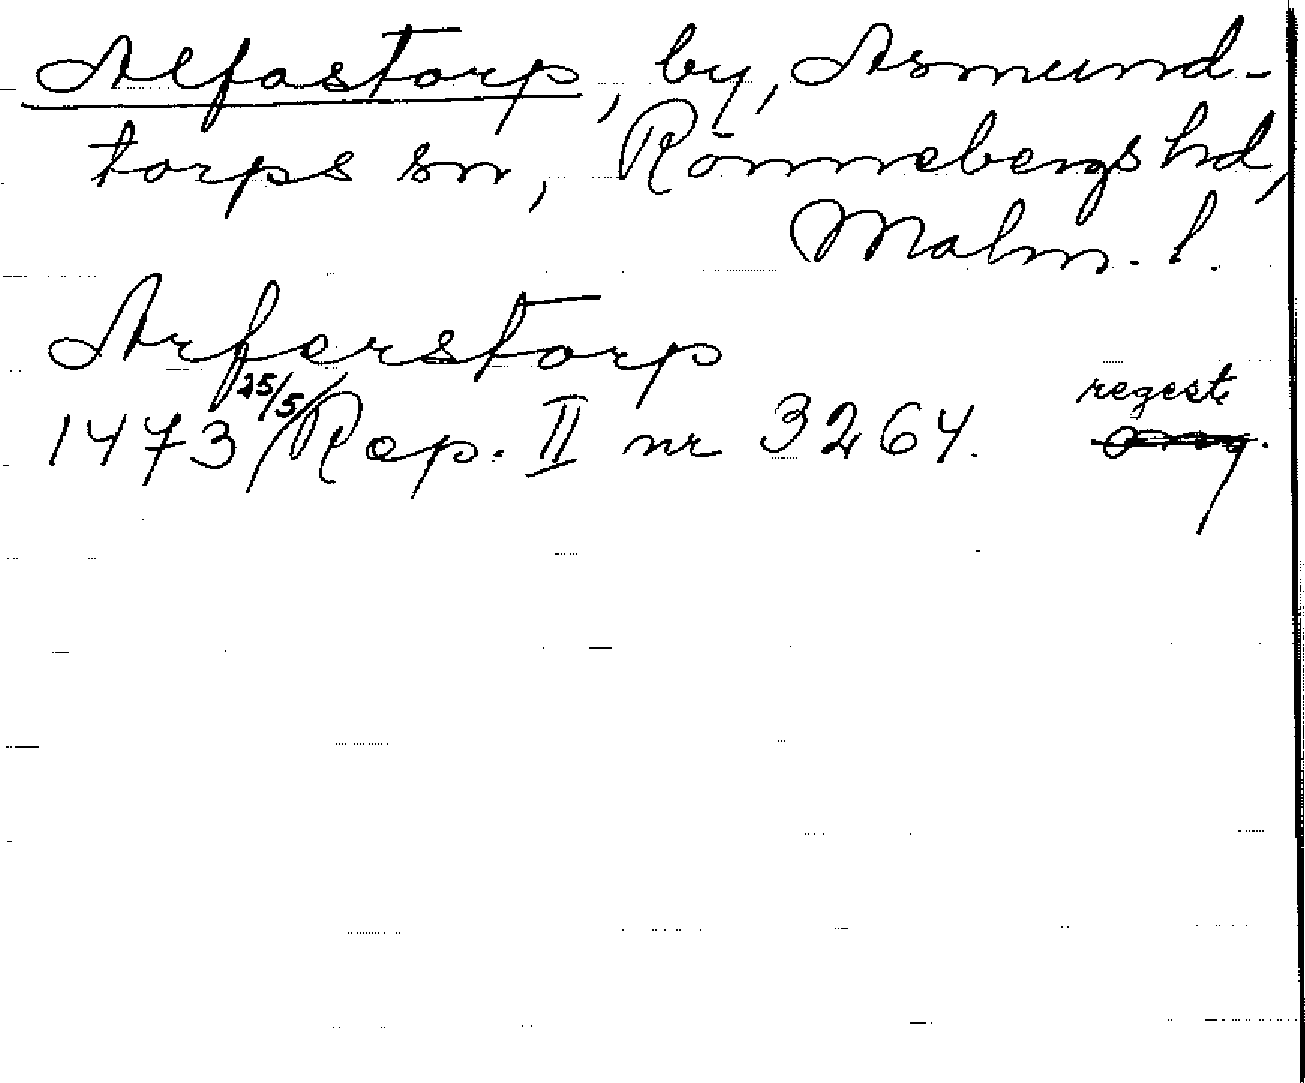 Alfastorp, by, Asmund-
torps sn, Rönnebergs hd,
Malm. l.
Arferstorp
regest.
1473 25/5 Rep. II nr 3264.